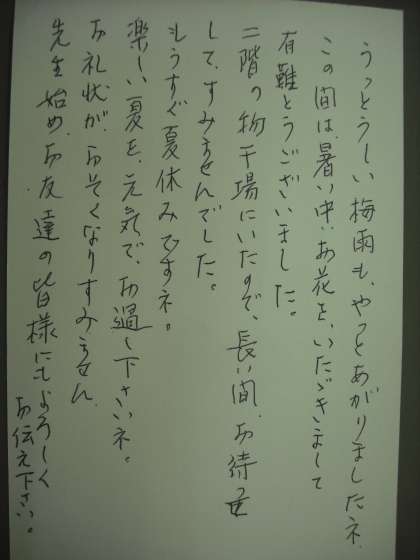 うっとうしい梅雨も、やっとあがりましたネ、
この間は、暑い中、お花を、いただきまして
有難とうございました。
二階の物干場にいたので、長い間、お待っせ
して、すみませんでした。
もうすぐ夏休みですネ。
楽しい夏を、元気で、お過し下さいネ。
お礼状が、おそくなりすみません、
先生始め、お友達の皆様にもよろしく
お伝え下さい。